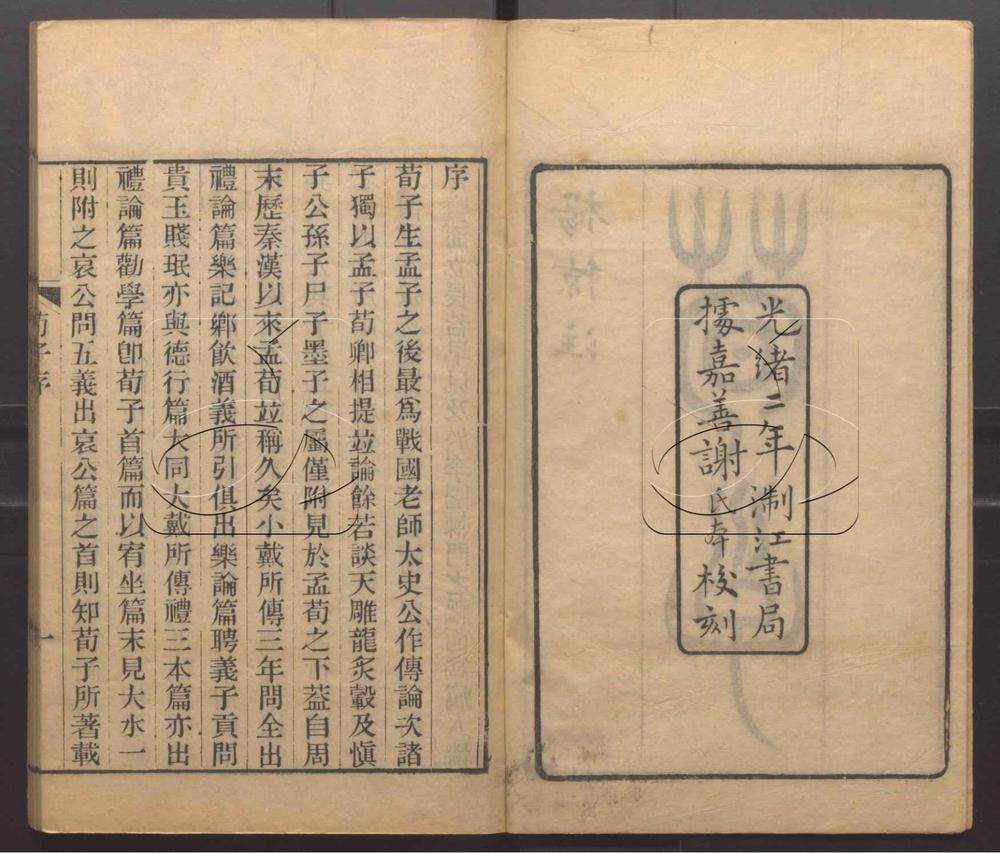 光緒二年浙江書局
據嘉善謝氏本校刻
序
荀子生孟子之後最爲戰國老師太史公作傳論次諸
子獨以孟子荀卿相提竝論餘若談天雕龍炙轂及愼
子公孫子尸子墨子之屬僅附見於孟荀之下葢自周
末歷秦漢以來孟荀竝稱久矣小戴所傳三年問全出
禮論篇樂記鄉飲酒義所引俱出樂論篇聘義子貢問
貴玉賤珉亦與德行篇大同大戴所傳禮三本篇亦出
禮論篇勸學篇卽荀子首篇而以宥坐篇末見大水一
則附之哀公問五義出哀公篇之首則知荀子所著載
荀子序
一